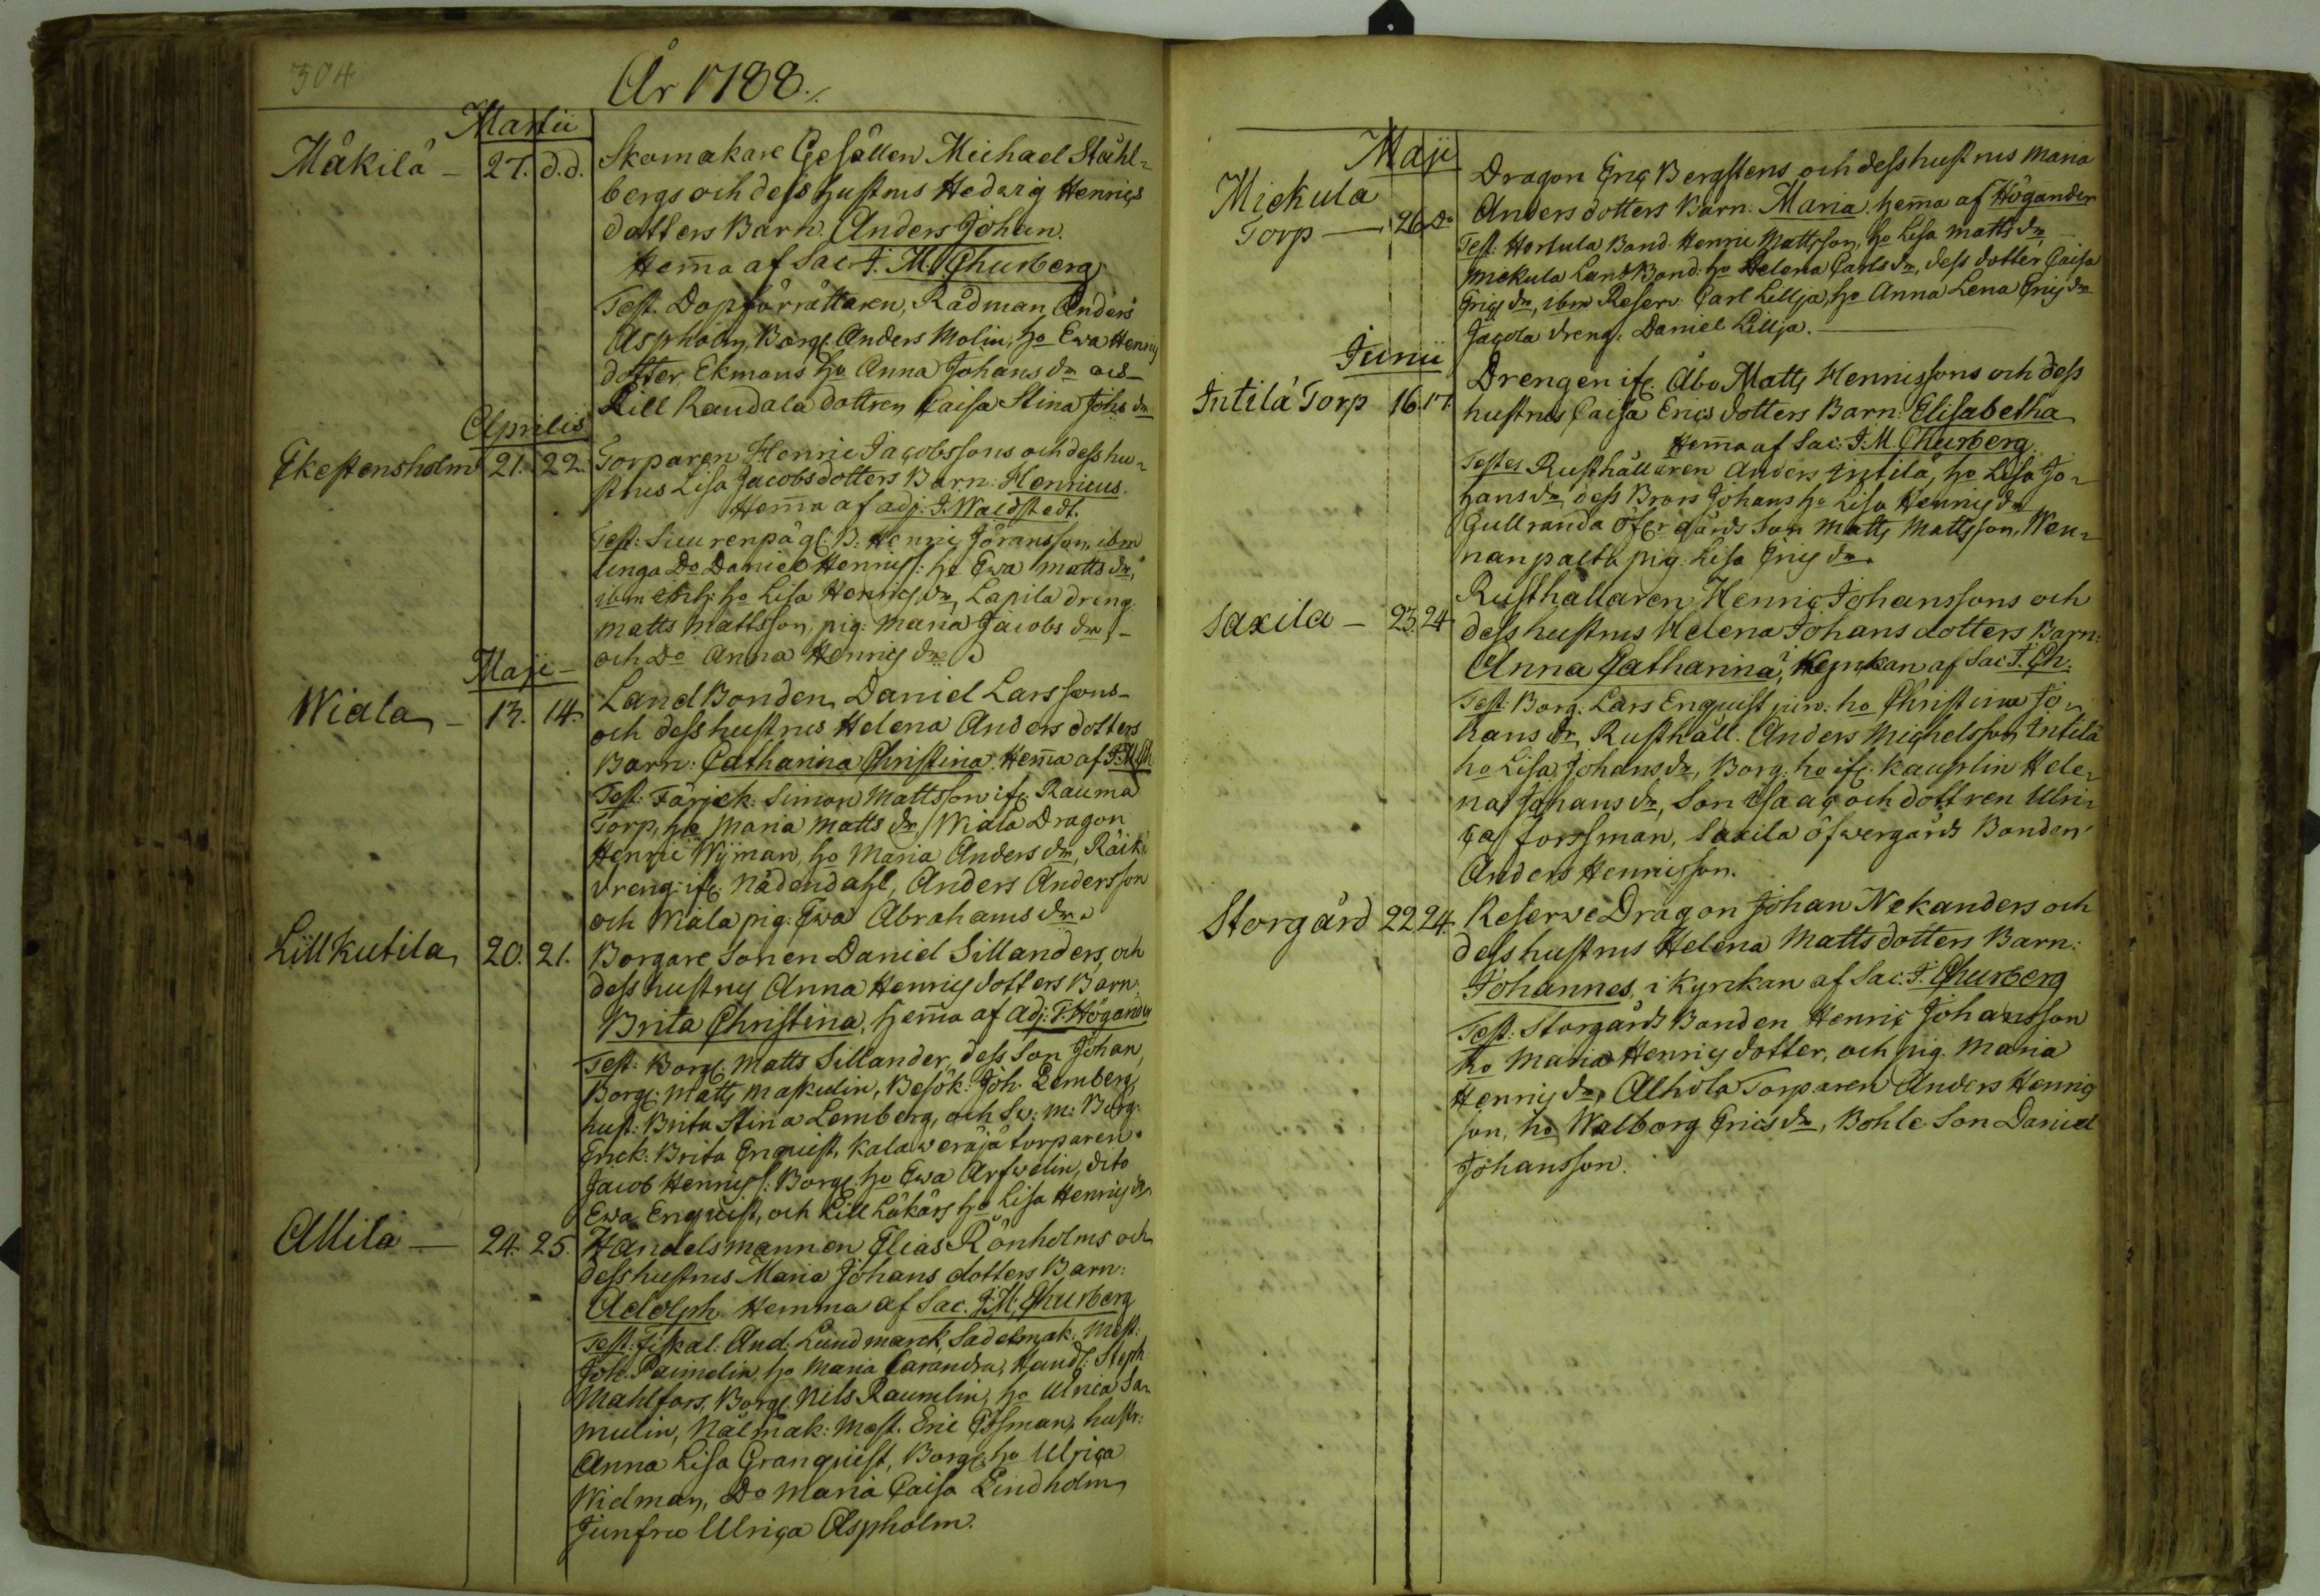 304
År 1788.
Martii
Mäkilä – 27. d.d. Skomakare Gesällen Michael Ståhl-
bergs och dess hustrus Hedwig Henrics
dotters Barn. Anders Johan.
Hem̄a af Sac. J. M. Churberg
Test. Dopförrättaren, Rådman Anders
Aspholm, Borg. Anders Molin, ho Ewa Henric
dotter Ekmans ho Anna Johans dr och
Lill Raudala dottren Caisa Stina Johs dr
Aprilis
Ekestensholm 21. 22. Torparen Henric Jacobssons och dess hu-
strus Lisa Jacobsdotters Barn: Henricus.
Hem̄a af adj. J. Waldstedt.
Test: B: Henric Jöransson, ibm
unga Do Daniel Henrics: ho Ewa Matts dr,
ibm ho Lisa Henrics dr, Lapila dreng.
Matts Mattsson, pig: Maria Jacobs dr,
och Do Anna Henrics dr
Maji
Wiala – 13. 14. Land Bonden Daniel Larssons
och dess hustrus Helena Anders dotters
Barn: Catharina Christina. Hem̄a af J. M. Ch
Test: Färjck. Simon Mattsson ifr. Rauma
Torp, ho Maria Matts dr, Wiala Dragon
Henric Wijman, ho Maria Anders dr,
dreng. ifr. Nådendahl, Anders Andersson
och Wiala pig. Ewa Abrahams dr.
Lill Kutila 20. 21. Borgare Sonen Daniel Sillanders, och
dess hustrus Anna Henrics dotters Barn:
Brita Christina, hem̄a af adj. Högander
Test: Borg. Matts Sillander, dess Son Johan,
Borg: Matts Maskulin, Besök: Joh. Lemberg,
hust: Brita Stina Lemberg, och Sv: m: Borg.
Enck: Brita Enquist, Kalaweräjä torparen
Jacob Henricss: Borg. ho Ewa Arfwelin, dito
Ewa Enquist, och Lill ho Lisa Henrics dr
Allila – 24. 25. Handelsmannen Elias Rönholms och
dess hustrus Maria Johans dotters Barn:
Adolph. Hemma af Sac. J. M. Churberg
Test: Fiskal: And: Lundmarck, Sadelmak: Mest:
Joh. Paimelin, ho Maria Carandra, Handl: Steph.
Mahlfors, Borg. Nils Raumlin, ho Ulrica Sa-
mulin, Nålmak: Mest. Eric Essman, hustr:
Anna Lisa Granquist, Borg. ho Ulrica
Widman, Do Maria Caisa Lindholm
Junfru Ulrica Aspholm.
Maji
Mickula
Torp – 26. do Dragon Eric Bergstens och dess hustrus Maria
Anders dotters Barn: Maria. hem̄a af Högander
Test. Hertula Bond. Henric Mattsson, ho Lisa Matts dr,
Mickula Land Bond: ho Helena Carls dr, dess dotter Caisa
Erics dr, ibm Reserv: Carl Lillja, ho Anna Lena Erics dr
Jacola dreng: Daniel Lillja.
Junii
Intilä Torp 16. 17. Drengen ifr. Åbo Matts Henricssons och dess
hustrus Caisa Erics dotters Barn: Elisabetha
Hem̄a af Sac: J. M. Churberg
Testes Rusthållaren Anders Intilä, ho Lisa Jo-
hans dr, dess Brors Johans ho Lisa Henrics dr
Gullranda öfergårds Son Matts Mattsson, Wen-
nanpalta pig: Lisa Erics dr.
Saxila – 23. 24. Rusthållaren Henric Johanssons och
dess hustrus Helena Johans dotters Barn:
Anna Catharina, i Kyrckan af Sac. J. Ch.
Test: Borg. Lars Enquist jun: ho Christina Jo-
hans dr, Rusthåll. Anders Michelsson Intilä
ho Lisa Johans dr, Borg. ho ifr. Kauplin Hele-
na Johans dr, Son Isaac och dottren Ulri-
ca forssman, Saxila öfwergårds Bonden
Anders Henricsson.
Storgård 22 24. Reserve Dragon Johan Nekanders och
dess hustrus Helena Mattsdotters Barn:
Johannes, i Kyrckan af Sac. J. Churberg
Test: Storgårds Bonden Henric Johansson
ho Maria Henrics dotter, och pig. Maria
Henrics dr, Alhola Torparen Anders Henrics
son, ho Walborg Erics dr, Bohle Son Daniel
Johansson.